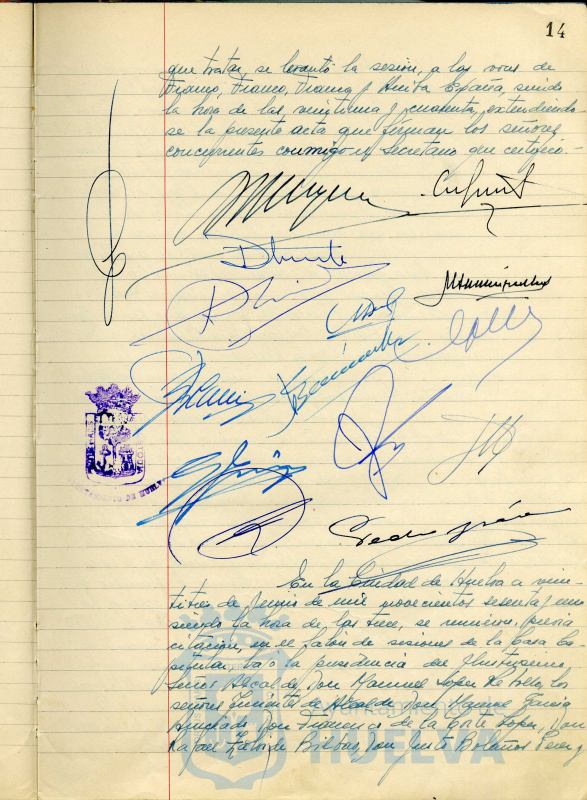 14
que tratar, se levantó la sesión, a las voces de
Franco, Franco, Franco y Arriba España, siendo
la hora de las veintiuna y cuarenta, extendiendo
se la presente acta que firman los señores
concurrentes conmigo el Secretario que certifico.-
Duarte
Pedro
En la Ciudad de Huelva a vein-
titres de Junio de mil novecientos sesenta y uno
siendo la hora de las trece, se reunieron, previa
citación, en el Salón de sesiones de la Casa Ca-
pitular, bajo la presidencia del Ilustrísimo
Señor Alcalde Don Manuel López los
señores Tenientes de Alcalde Don Manuel García
Don Francisco de la Corte López, Don
Rafael Bilbao, Don Justo Bolaños Pérez y
AYUNTAMIENTO DE HUELVA
HUELVA